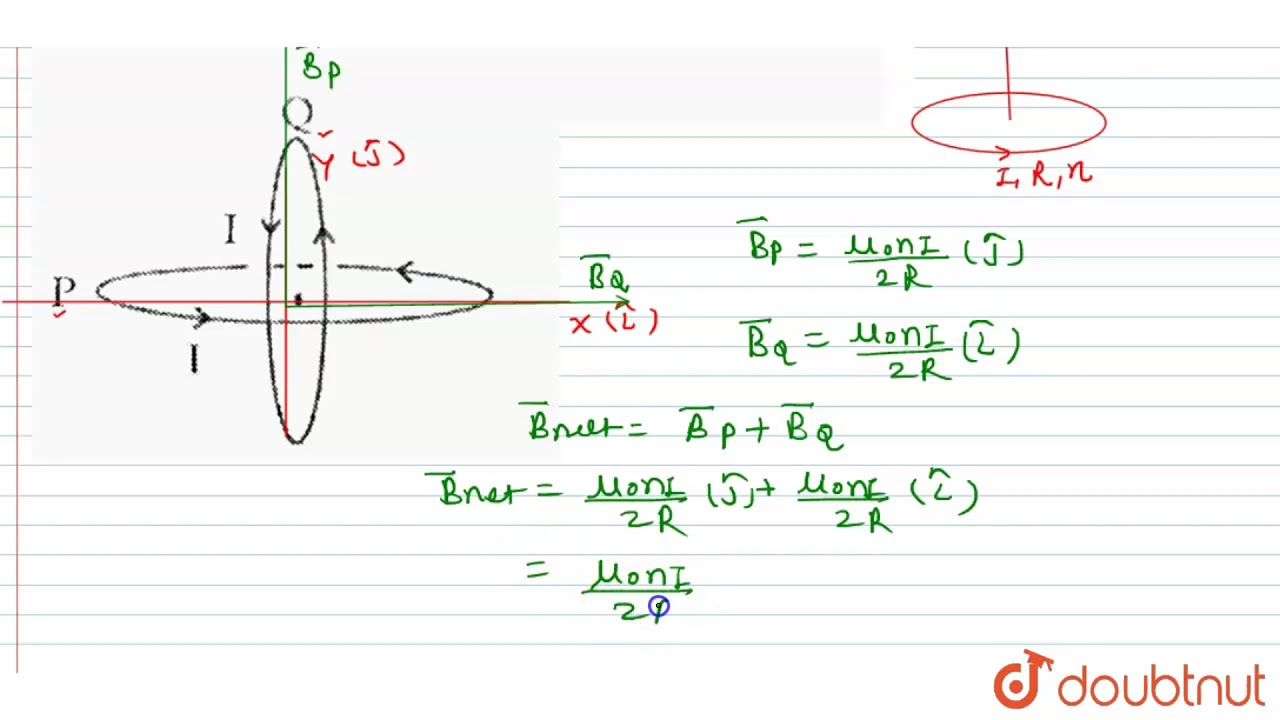 B̅p
Q
Y (ĵ)
I
P
B̅Q
X (î)
I
I, R, n
B̅p = μ₀nI/2R (ĵ)
B̅Q = μ₀nI/2R (î)
B̅net = B̅p + B̅Q
B̅net = μ₀nI/2R (ĵ) + μ₀nI/2R (î)
= μ₀nI/2
doubtnut